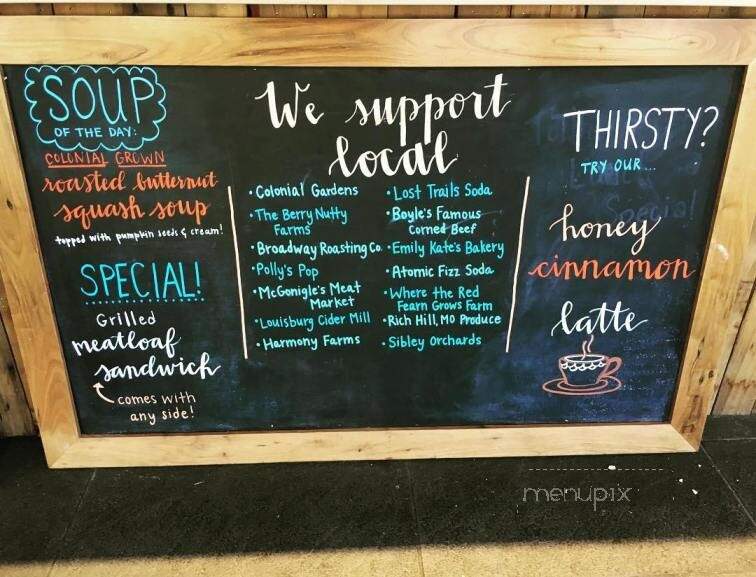 SOUP
OF THE DAY:
COLONIAL GROWN
roasted butternut
squash soup
topped with pumpkin seeds & cream!
SPECIAL!
Grilled
meatloaf
sandwich
comes with
any side!
We support
local
• Colonial Gardens
• The Berry Nutty
Farms
• Broadway Roasting Co.
• Polly's Pop
• McGonigle's Meat
Market
• Louisburg Cider Mill
• Harmony Farms
• Lost Trails Soda
• Boyle's Famous
Corned Beef
• Emily Kate's Bakery
• Atomic Fizz Soda
• Where the Red
Fearn Grows Farm
• Rich Hill, MO Produce
• Sibley Orchards
THIRSTY?
TRY OUR...
honey
cinnamon
latte
menupix